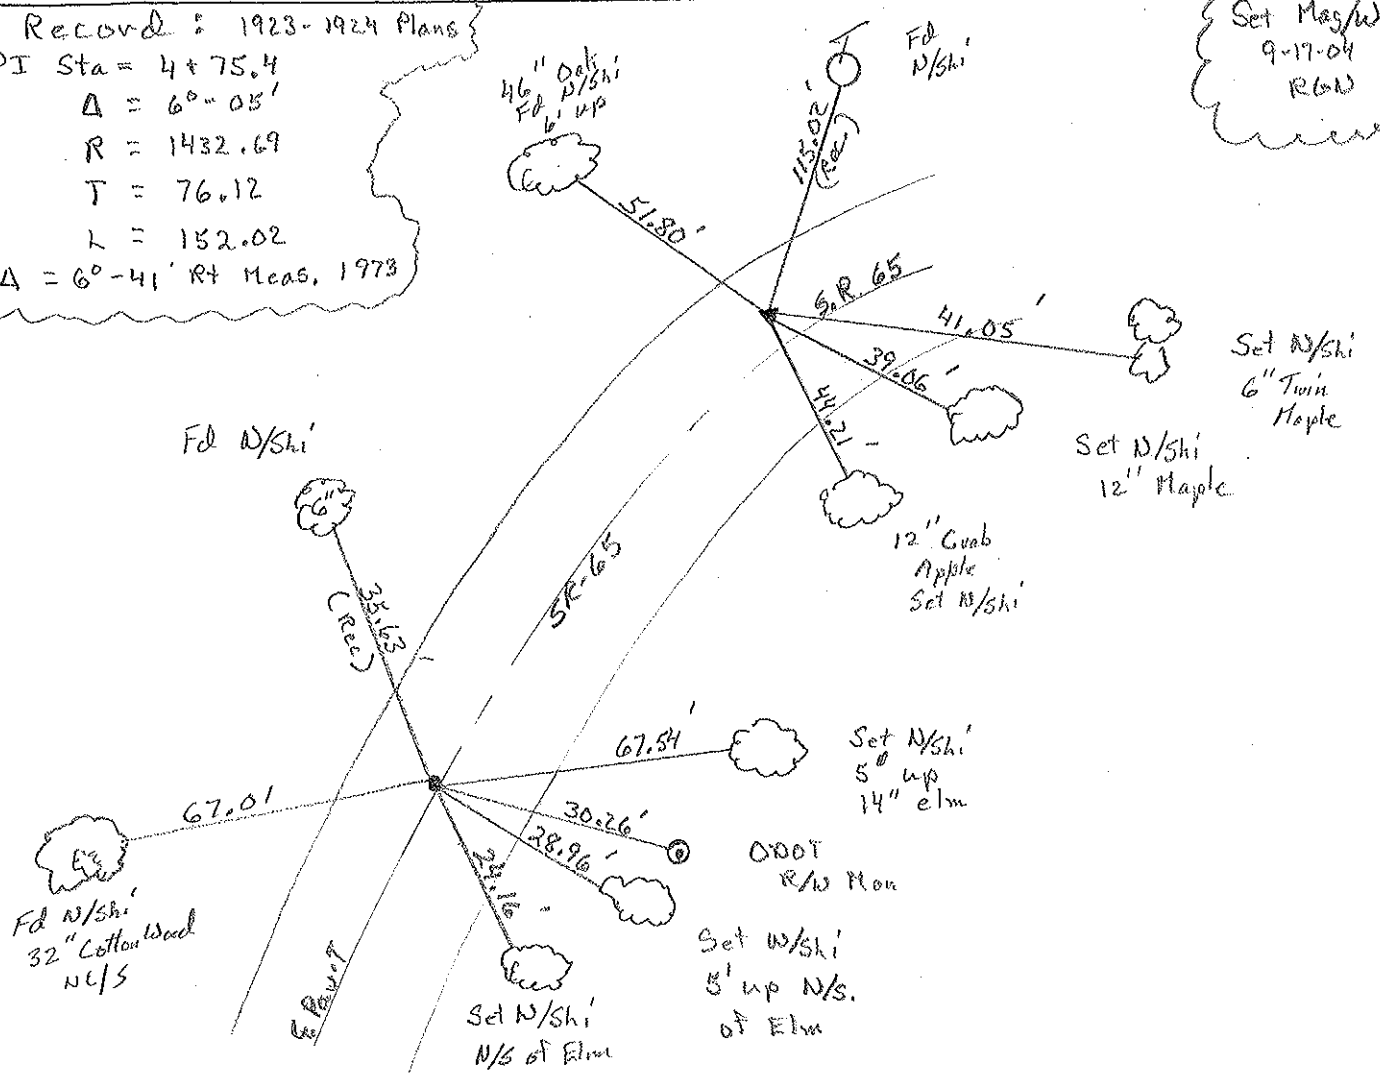 Record : 1923-1924 Plans
PI Sta = 4+75.4
Δ = 6°-05'
R = 1432.69
T = 76.12
L = 152.02
Δ = 6°-41' Rt Meas. 1973
Set Mag/W
9-17-04
RGN
46" Oak
Fd N/Shi
6' up
T
Fd
N/Shi
115.02'
(Rec)
51.80'
S.R 65
41.05'
39.06'
44.21'
Set N/Shi
6" Twin
Maple
Set N/Shi
12" Maple
12" Crab
Apple
Set N/Shi
Fd N/Shi
6"
35.63'
(Rec)
SR-65
67.54'
Set N/Shi
5' up
14" elm
67.01
30.26'
28.96'
24.16'
ODOT
R/W Mon
Fd N/Shi
32" CottonWood
Set N/Shi
5' up N/S.
of Elm
Set N/Shi
N/S of Elm
℄ Pavm't